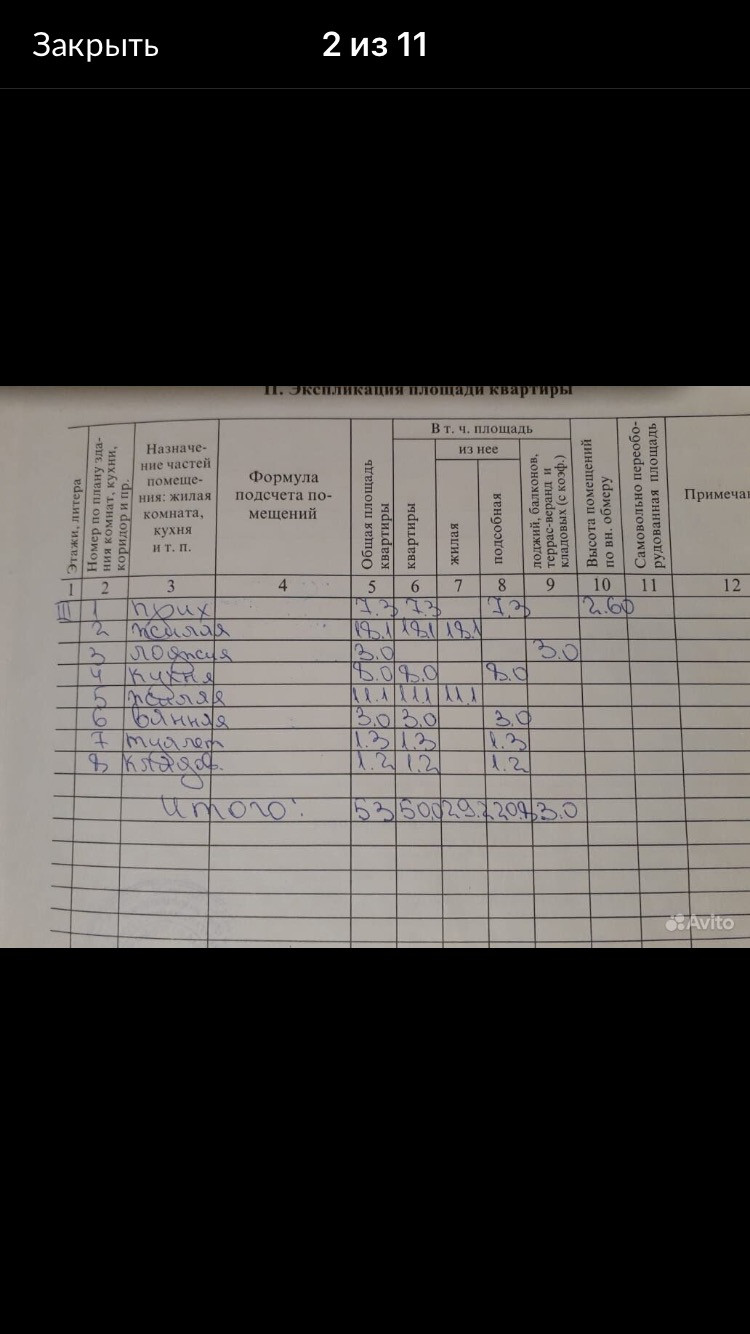 Закрыть 2 из 11
II. Экспликация площади квартиры
Этажи, литера
Номер по плану зда-
ния комнат, кухни,
коридор и пр.
Назначе-
ние частей
помеще-
ния: жилая
комната,
кухня
и т. п.
Формула
подсчета по-
мещений
Общая площадь
квартиры
В т. ч. площадь
квартиры
из нее
жилая
подсобная
лоджий, балконов,
террас-веранд и
кладовых (с коэф.)
Высота помещений
по вн. обмеру
Самовольно переобо-
рудованная площадь
Примечан
1 2 3 4 5 6 7 8 9 10 11 12
III 1 прих 7.3 7.3 7.3 2.60
2 жилая 18.1 18.1 18.1
3 лоджия 3.0 3.0
4 кухня 8.0 8.0 8.0
5 жилая 11.1 11.1 11.1
6 ванная 3.0 3.0 3.0
7 туалет 1.3 1.3 1.3
8 кладов. 1.2 1.2 1.2
Итого: 53 50.0 29.2 20.8 3.0
Avito